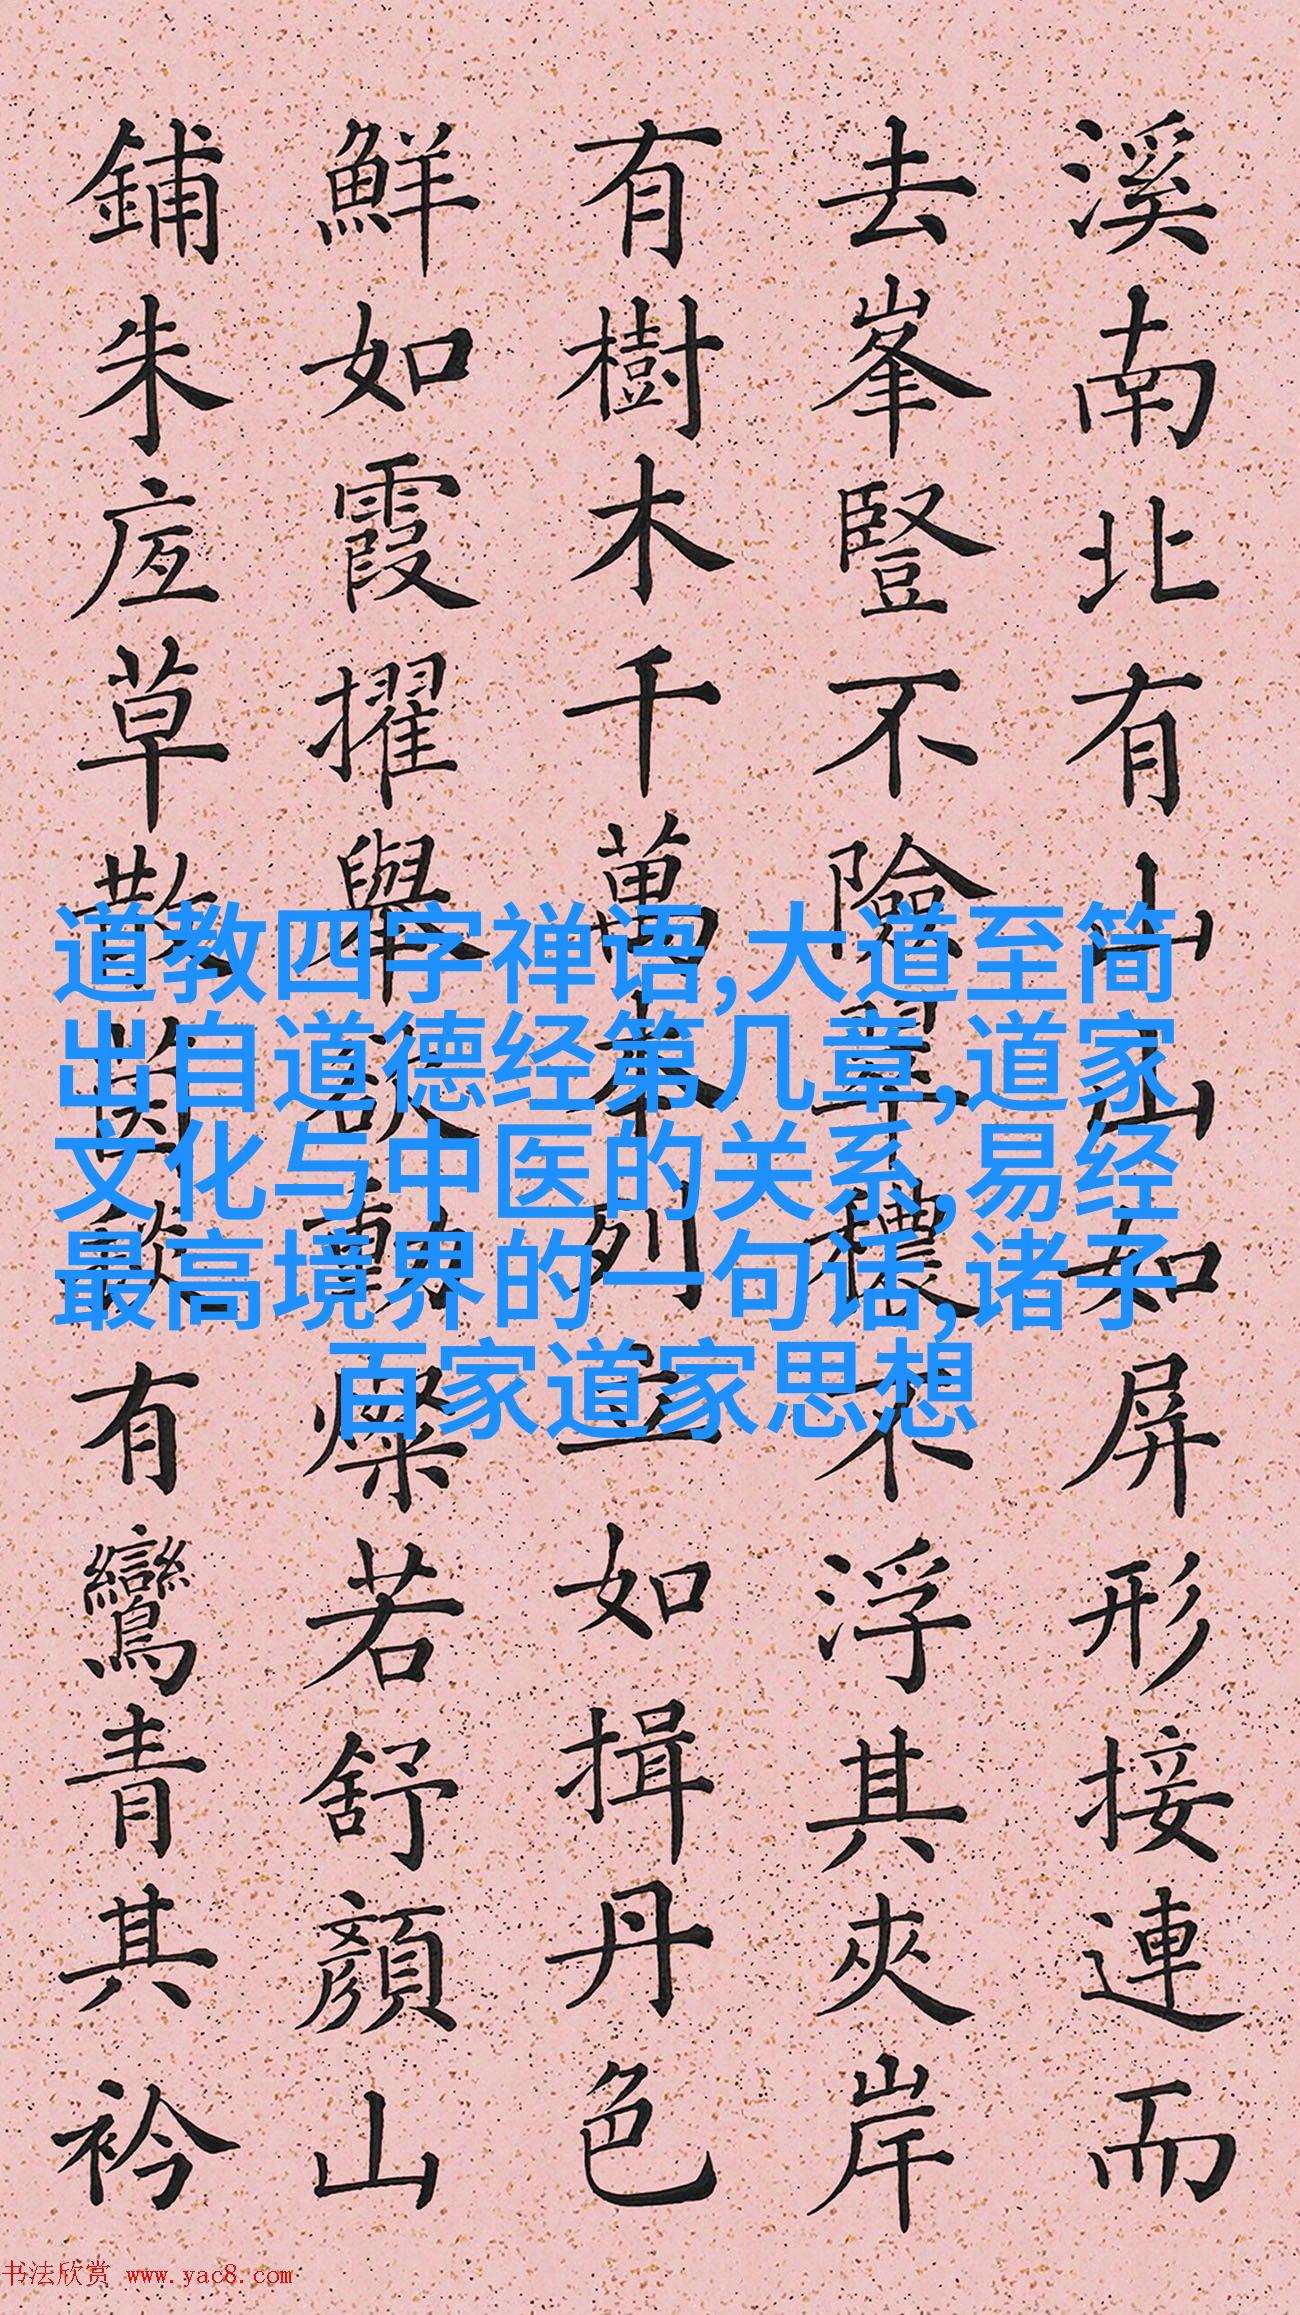 溪南北有山山如屏形接連而
去峯豎不險翠穠不浮其夾岸
有樹木千萬本列立如揖丹色
鮮如霞擢舉欲動燦若舒顏山
鋪朱底草散茵毯有鸞青其衿
道教四字禅语,大道至简
出自道德经第几章,道家
文化与中医的关系,易经
最高境界的一句话,诸子
百家道家思想
书法欣赏 www.yac8.com